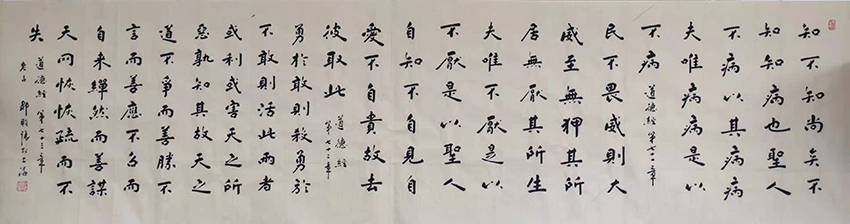 知不知尚矣不
知知病也聖人
不病以其病病
夫唯病病是以
不病 道德經第七十一章
民不畏威則大
威至無狎其所
居無厭其所生
夫唯不厭是以
不厭是以聖人
自知不自見自
愛不自貴故去
彼取此 道德經
第七十二章
勇於敢則殺勇於
不敢則活此兩者
或利或害天之所
惡孰知其故天之
道不爭而善勝不
言而善應不召而
自來繟然而善謀
天网恢恢疏而不
失 道德經 第七十三章
老子